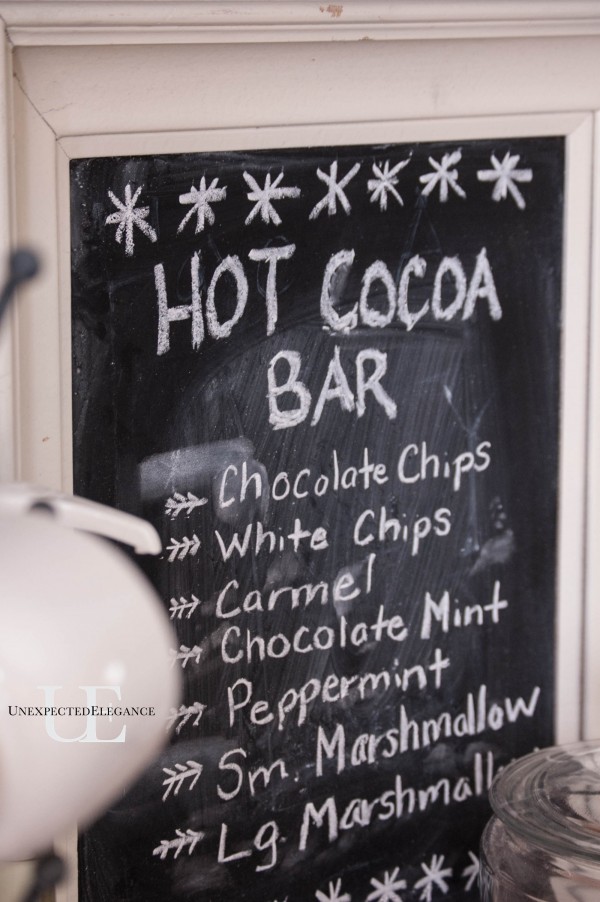 HOT COCOA
BAR
Chocolate Chips
White Chips
Carmel
Chocolate Mint
Peppermint
Sm. Marshmallow
Lg. Marshmall
UE
UNEXPECTEDELEGANCE